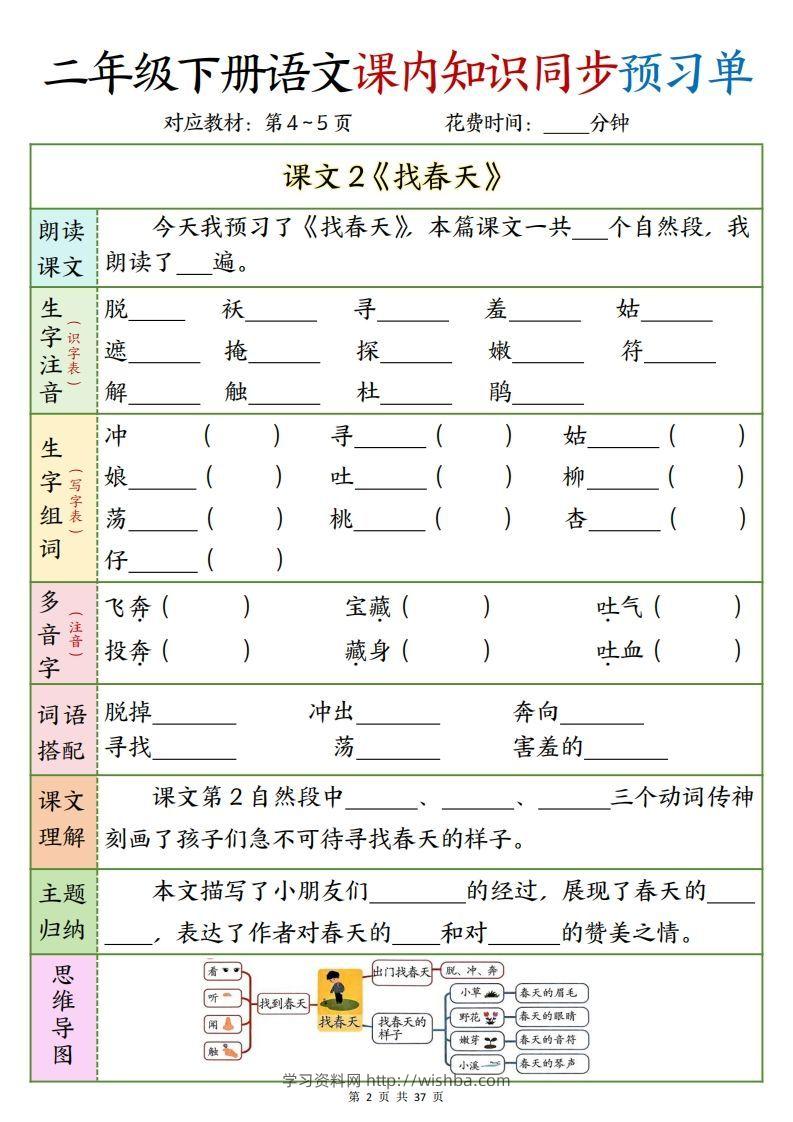 二年级下册语文课内知识同步预习单
对应教材：第4~5页 花费时间：____分钟
课文2《找春天》
朗读课文
今天我预习了《找春天》，本篇课文一共___个自然段，我
朗读了___遍。
生字注音（识字表）
脱____ 袄____ 寻____ 羞____ 姑____
遮____ 掩____ 探____ 嫩____ 符____
解____ 触____ 杜____ 鹃____
生字组词（写字表）
冲 （ ） 寻____（ ） 姑____（ ）
娘____（ ） 吐____（ ） 柳____（ ）
荡____（ ） 桃____（ ） 杏____（ ）
仔____（ ）
多音字（注音）
飞奔（ ） 宝藏（ ） 吐气（ ）
投奔（ ） 藏身（ ） 吐血（ ）
词语搭配
脱掉____ 冲出____ 奔向____
寻找____ 荡____ 害羞的____
课文理解
课文第2自然段中____、____、____三个动词传神
刻画了孩子们急不可待寻找春天的样子。
主题归纳
本文描写了小朋友们____的经过，展现了春天的____
____，表达了作者对春天的____和对____的赞美之情。
思维导图
看
听
闻
触
找到春天
找春天
出门找春天
脱、冲、奔
找春天的
样子
小草 春天的眉毛
野花 春天的眼睛
嫩芽 春天的音符
小溪 春天的琴声
学习资料网 http://wishba.com/
第 2 页 共 37 页